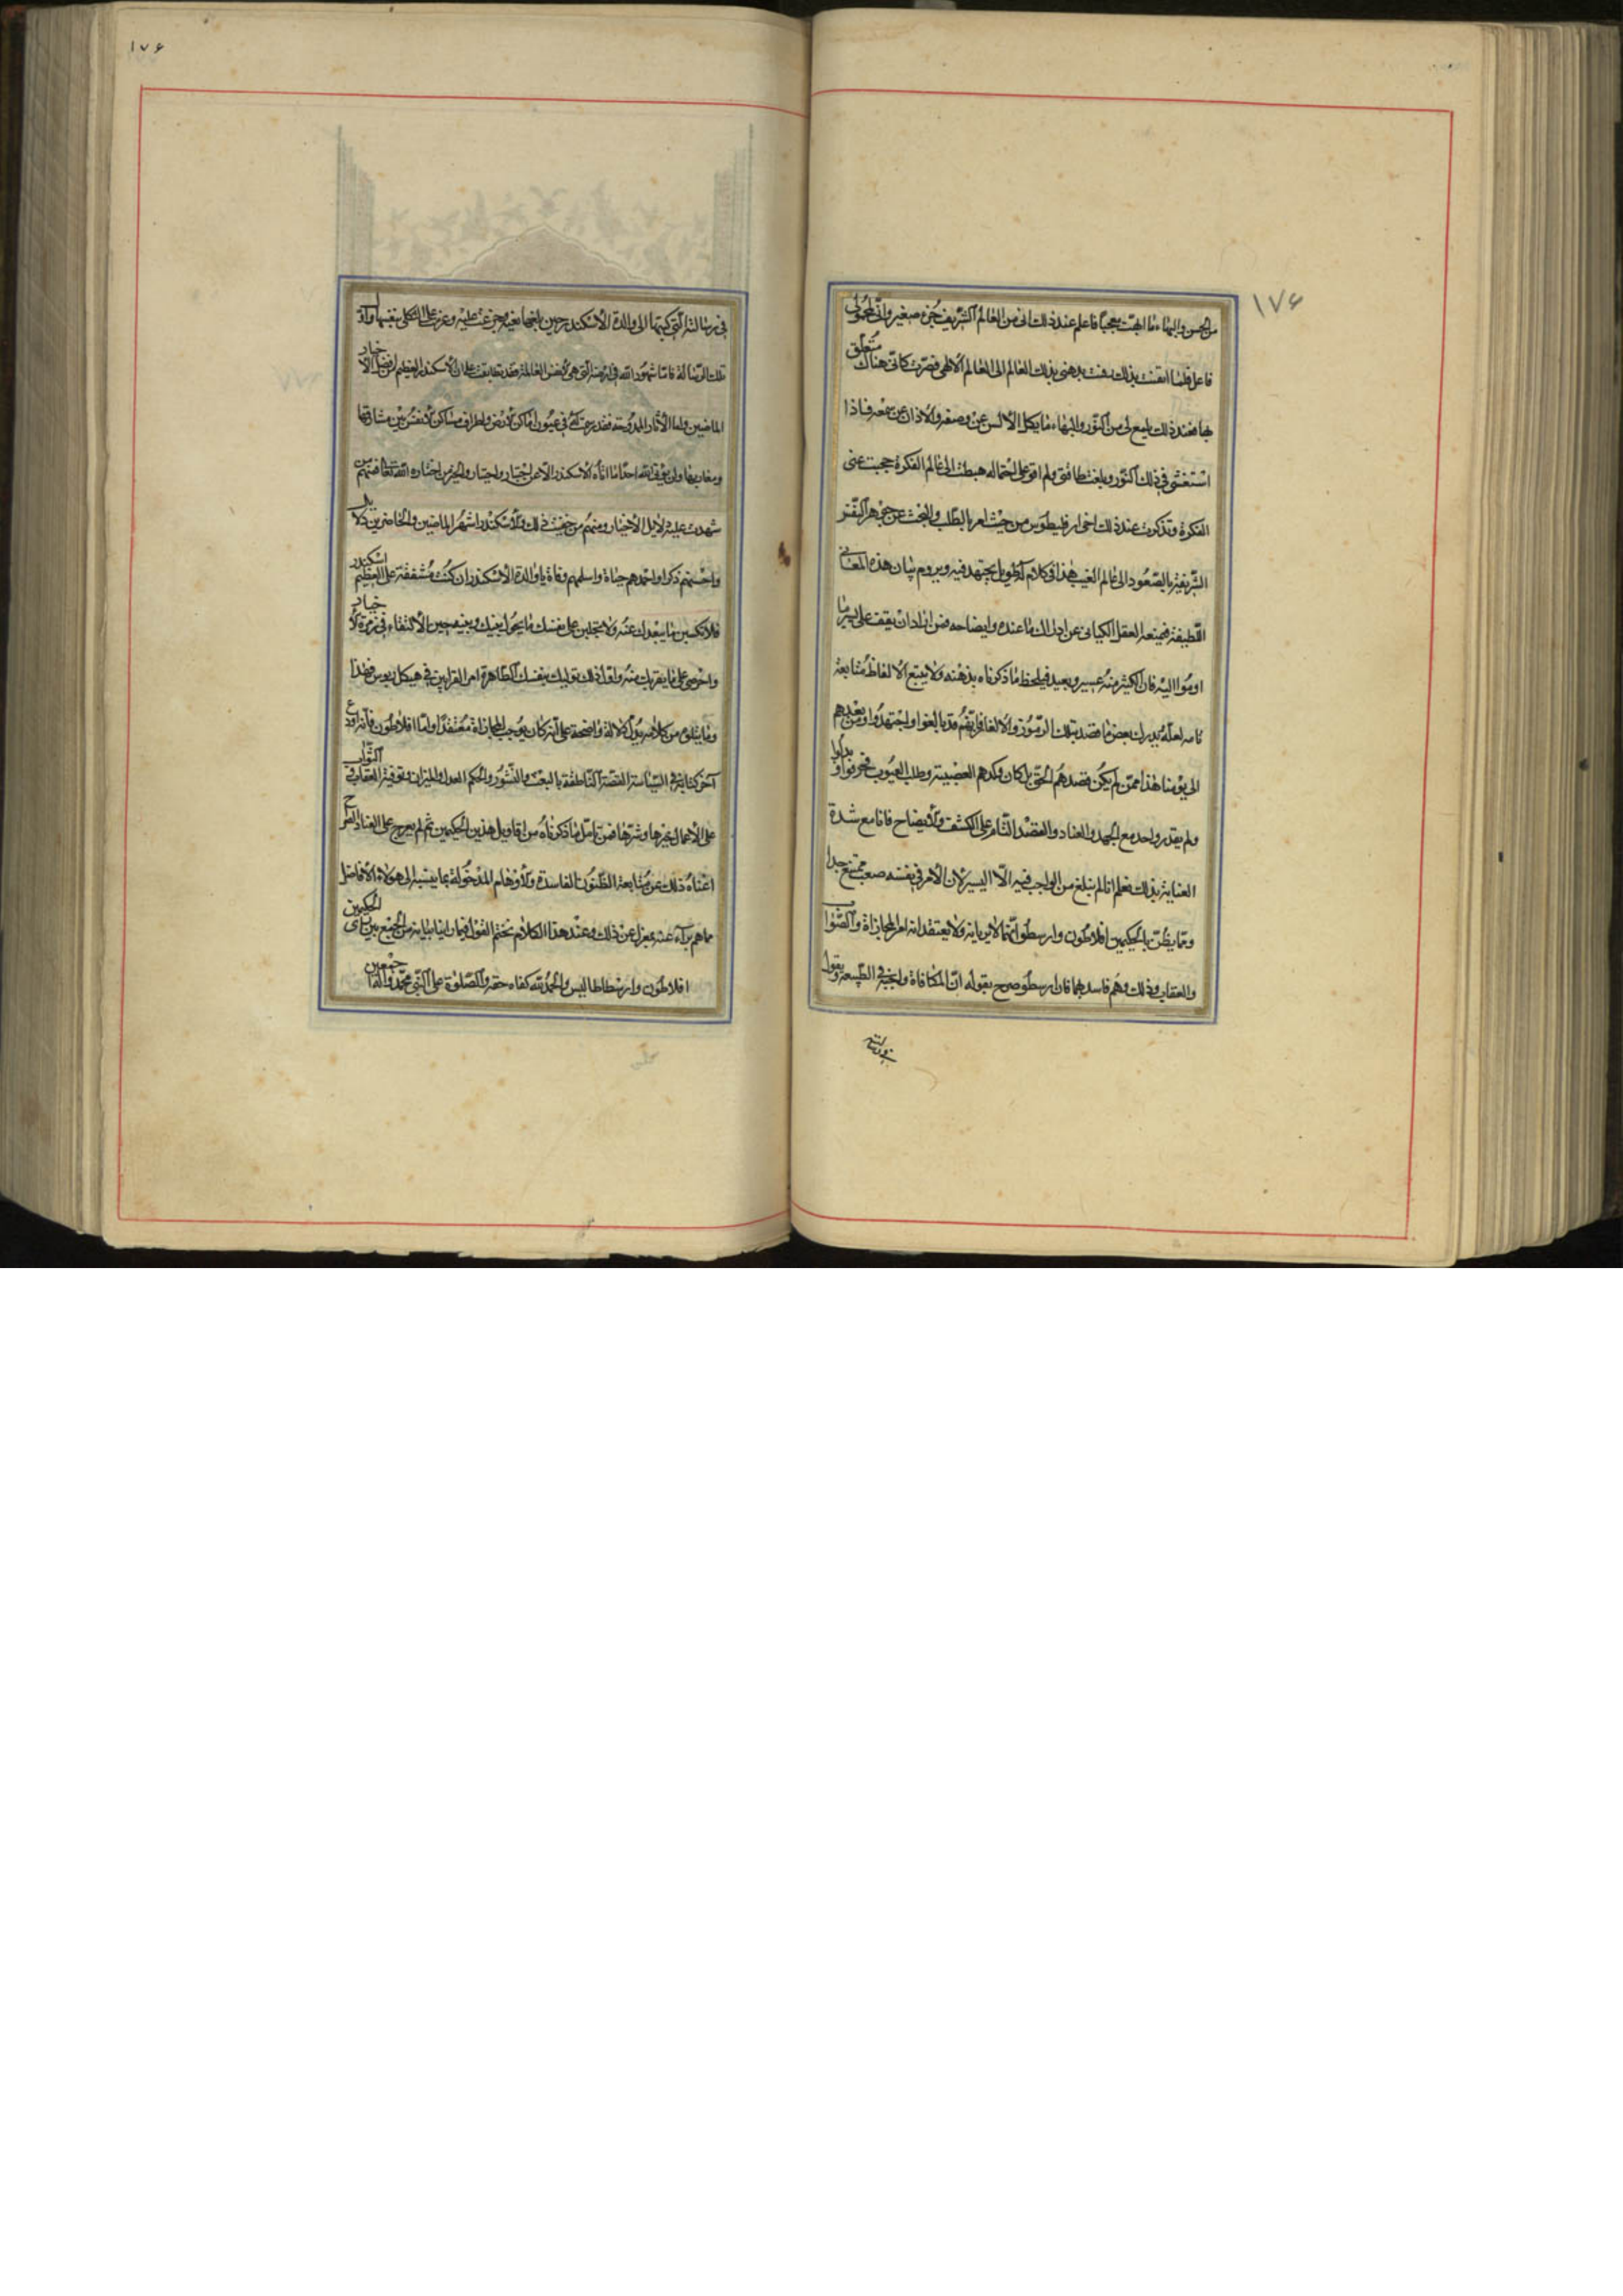 ١٧۶
من الحسن والبهاء ما ابقت متعجبا فاعلم عند ذلك انى من العالم الشريف جزء صغير وانى لمحيى
فاعل فلما ايقنت بذلك رقيت بذهنى بذلك العالم الى العالم الالهى فصرت كانى هناك متعلق
بها فعند ذلك يلمع لى من النور والبهاء ما يكل الالسن عن وصفه والاذان عن سمعه فاذا
استغشى فى ذلك النور وبلغت طاقتى ولم اقو على احتماله هبطت الى عالم الفكرة حجبت عنى
الفكرة وتذكرت عند ذلك اخى ارقليطوس من حيث امر بالطلب والبحث عن جوهر النفس
الشريفة بالصعود الى عالم الغيب هذا فى كلام له طويل يجتهد فيه ويروم بيان هذه المعانى
اللطيفة فيمنعه العقل الكيانى عن ادراك ما عنده وايضاحه فمن اراد ان يقف على يسير ما
اومؤا اليه فان الكثير منه عسير وبعيد فليلحظ ما ذكرناه بذهنه ولا يتبع الالفاظ متابعة
تامه لعله يدرك بعض ما قصد بتلك الرموز والالغاز فانهم قد بالغوا واجتهدوا ومن بعدهم
الى يومنا هذا ممن لم يكن قصدهم الحق بل كان وكدهم العصبية وطلب العيوب فحرفوا وبدلوا
ولم يقدر واحد مع الجهد والعناد والقصد التام على الكشف والايضاح فانا مع شدة
العناية بذلك نعلم انا لم نبلغ من الواجب فيه الا اليسير لان الامر فى نفسه صعب ممتنع جدا
ومما يظن بالحكيمين افلاطون وارسطو انهما لا يريانه ولا يعتقدانه امر المجازاة والثواب
والعقاب وذلك وهم فاسد بهما فان ارسطو صرح بقوله ان المكافاة واجبة فى الطبيعة ويقول
١٧۶
فى رسالته التى كتبها الى والدة الاسكندر حين بلغها بغيه وجزعت عليه وعزمت على التشكلى بنفسها واول
تلك الرسالة فاما شهود الله فى ارضه التى هى الانفس العالمة فقد تطابقت على ان الاسكندر العظيم من افضل الاخيار
الماضين واما الآثار الممدوحة فقد رسمت له فى عيون اماكن الارض واطراف مساكن الانفس بين مشارقها
ومغاربها ولن يؤتى الله احدا ما اتاه الاسكندر الا عن اجتباء واختيار والخير من اختاره الله تعالى فمنهم من
شهدت عليه دلايل الاختيار ومنهم من خفيت ذلك والاسكندر اشهر الماضين والحاضرين دلايل
واحسنهم ذكرا واحمدهم حياة واسلمهم وفاة يا والدة الاسكندر ان كنت مشفقة على العظيم اسكندر
فلا تكسبن ما يبعدك عنه ولا تجلبن على نفسك ما يحول بينك وبينه حين الالتقاء فى زمرة الاخيار
واحرصى على ما يقربك منه واول ذلك توليك بنفسك الطاهرة امر القرابين فى هيكل ديوس فهذا
وما يتلوه من كلامه يدل دلالة واضحة على انه كان يوجب المجازاة معتقدا واما افلاطون فانه اودع
آخر كتابه فى السياسة القصة الناطقة بالبعث والنشور والحكم العدل والميزان وتوفية العقاب والثواب
على الاعمال خيرها وشرها فمن تامل ما ذكرناه من اقاويل هذين الحكيمين ثم لم يعرج على العناد الصراح
اغناه ذلك عن متابعة الظنون الفاسدة والاوهام المدخولة بما ينسبه الى هؤلاء الافاضل
مما هم براء عنه بمعزل عن ذلك وعند هذا الكلام نختم القول فيما رمنا بيانه من الجمع بين راى الحكيمين
افلاطون وارسطاطاليس والحمد لله كفاه حقه والصلوة على النبى محمد وآله اجمعين